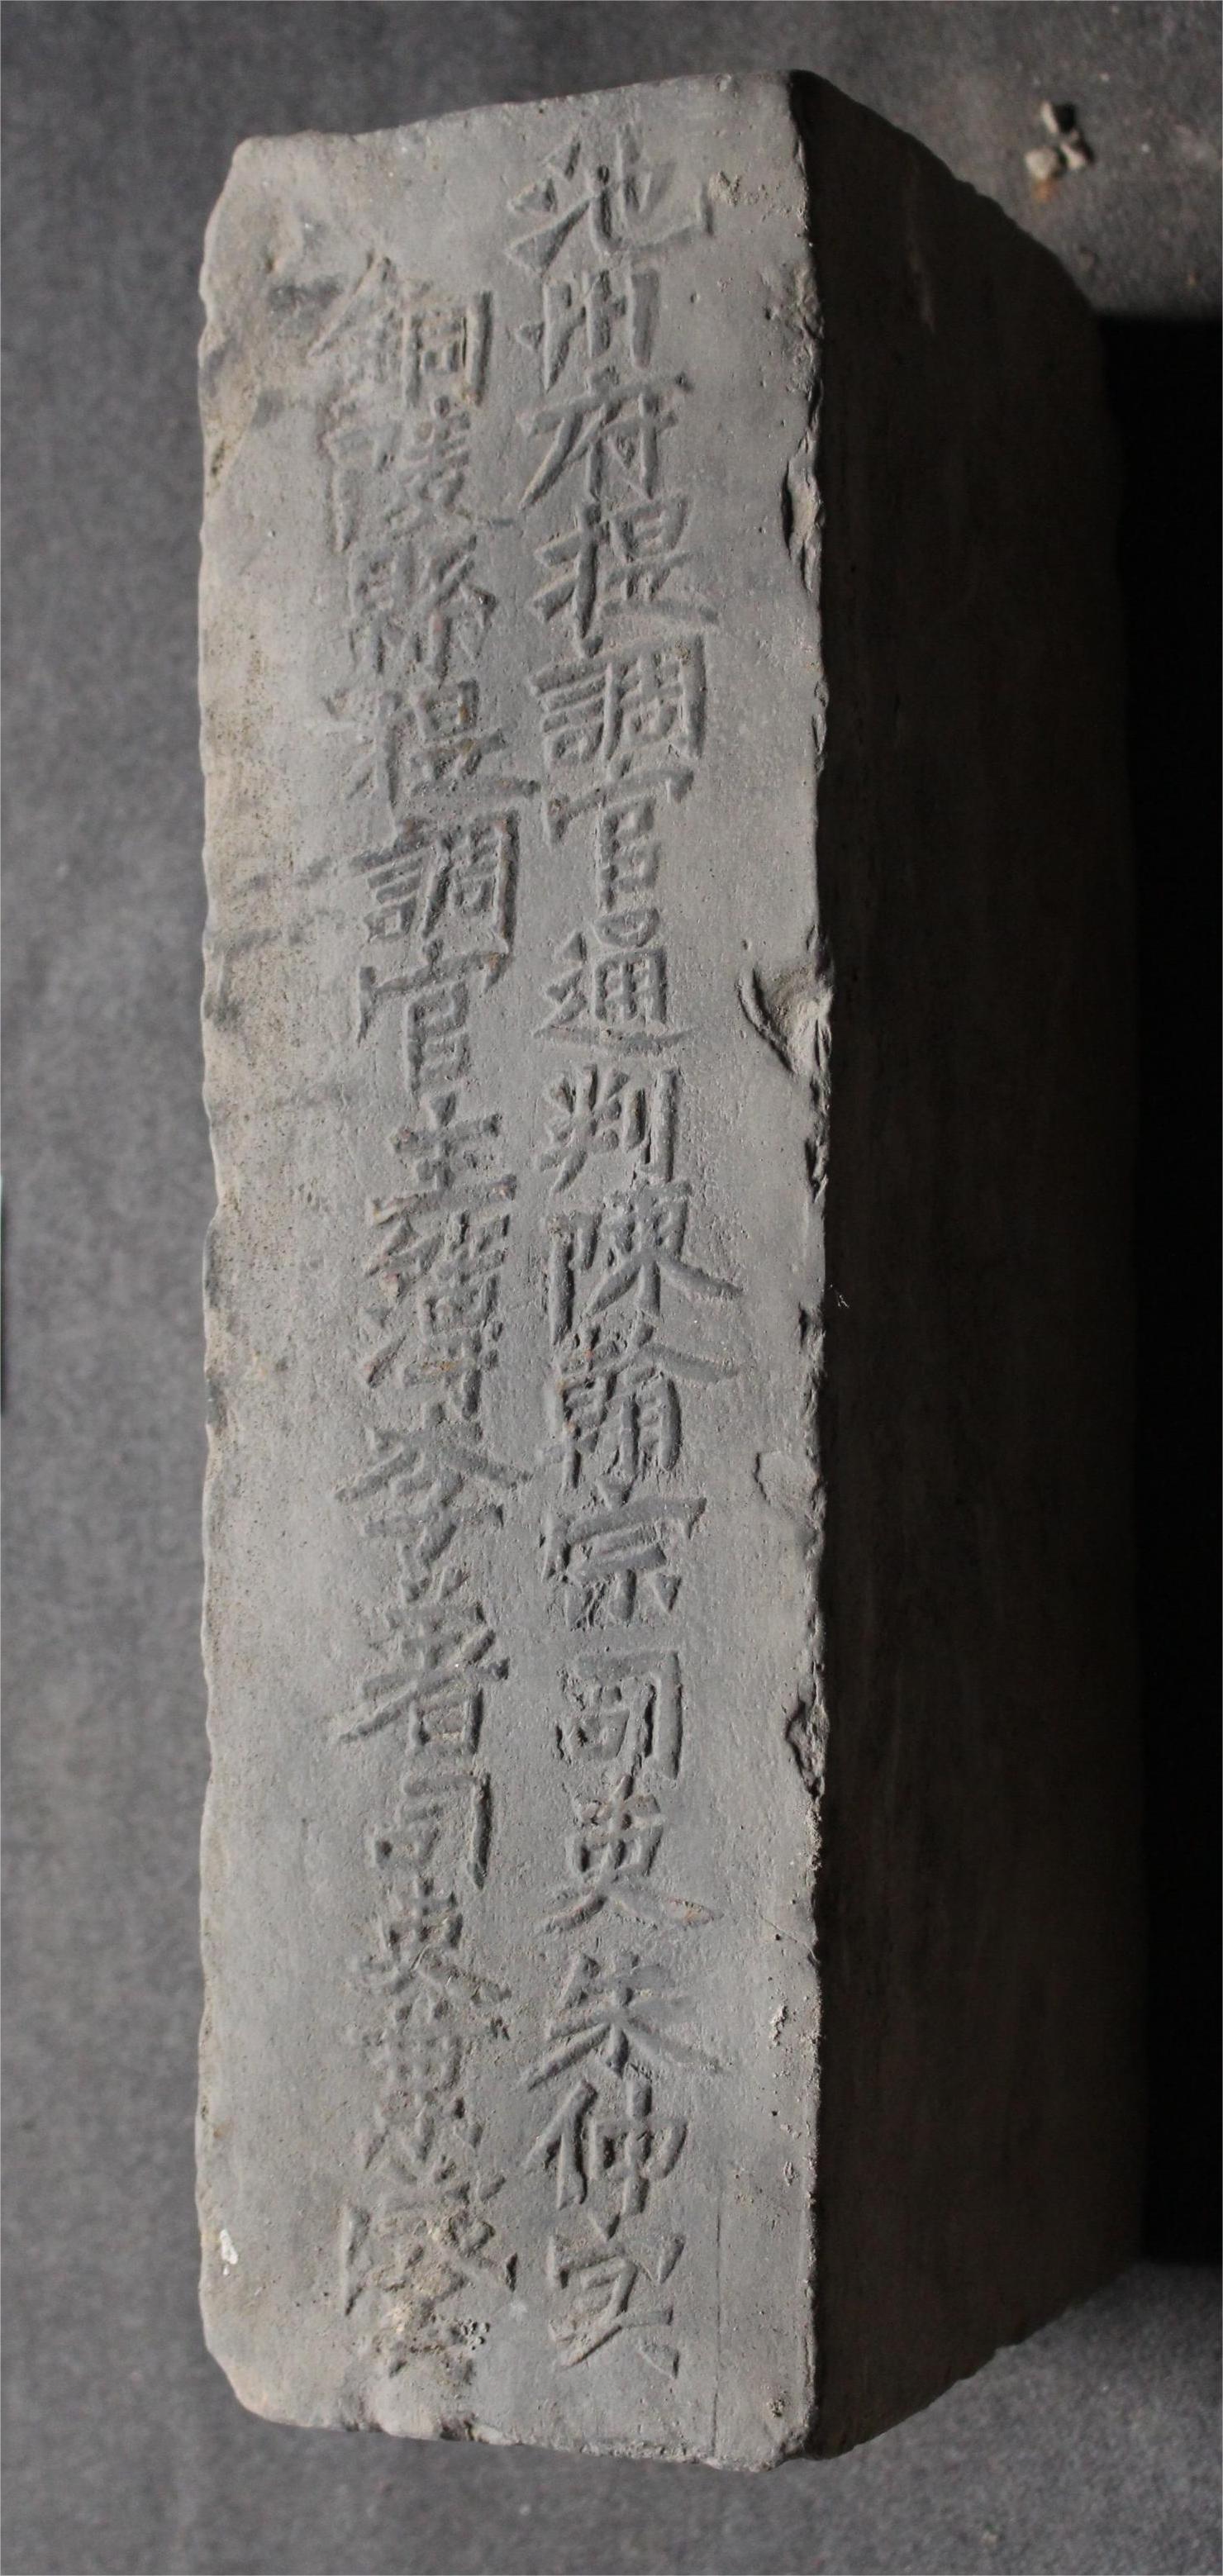 池州府提調官通判陳翰宗司吏朱仲实
銅陵縣提調官主簿李春司吏